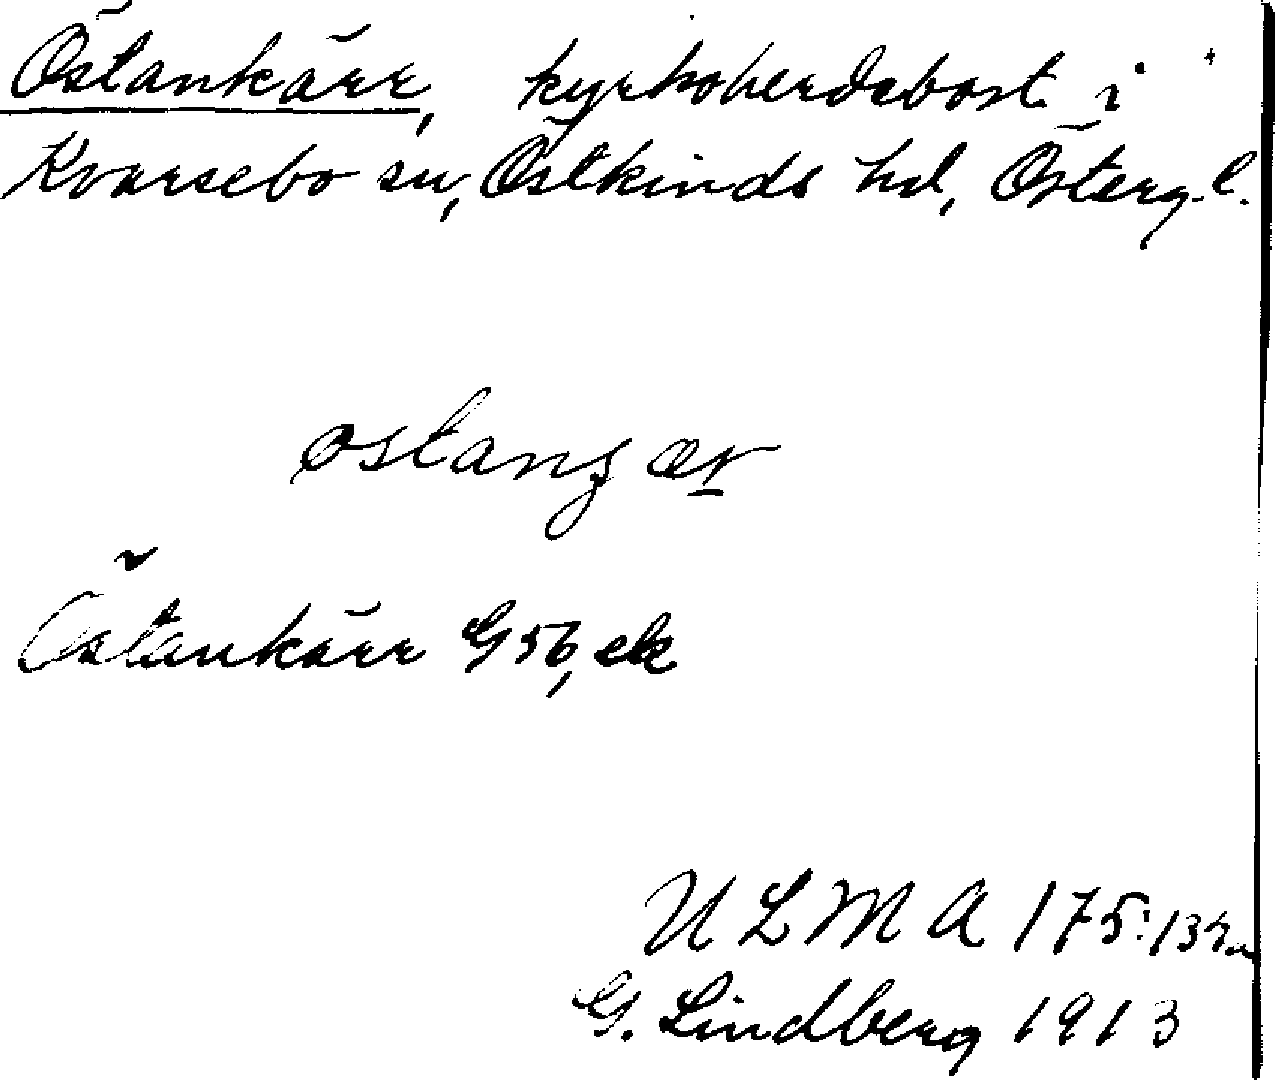 Östankärr, kyrkoherdebost. i
Kvarsebo sn, Östkinds hd, Österg. l.
østanʒ ær
Östankärr G 56, ek
U L M A 175:
G. Lindberg 1913